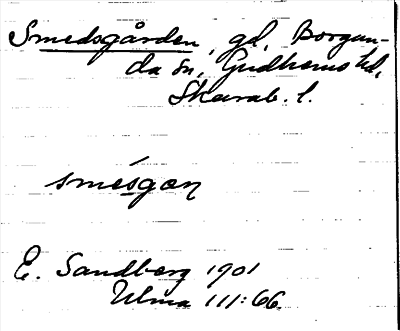 Smedsgården, gd, Borgun-
da sn, Gudhems hd,
Skarab. l.
smésgan
E. Sandberg 1901
Ulma 111:66.